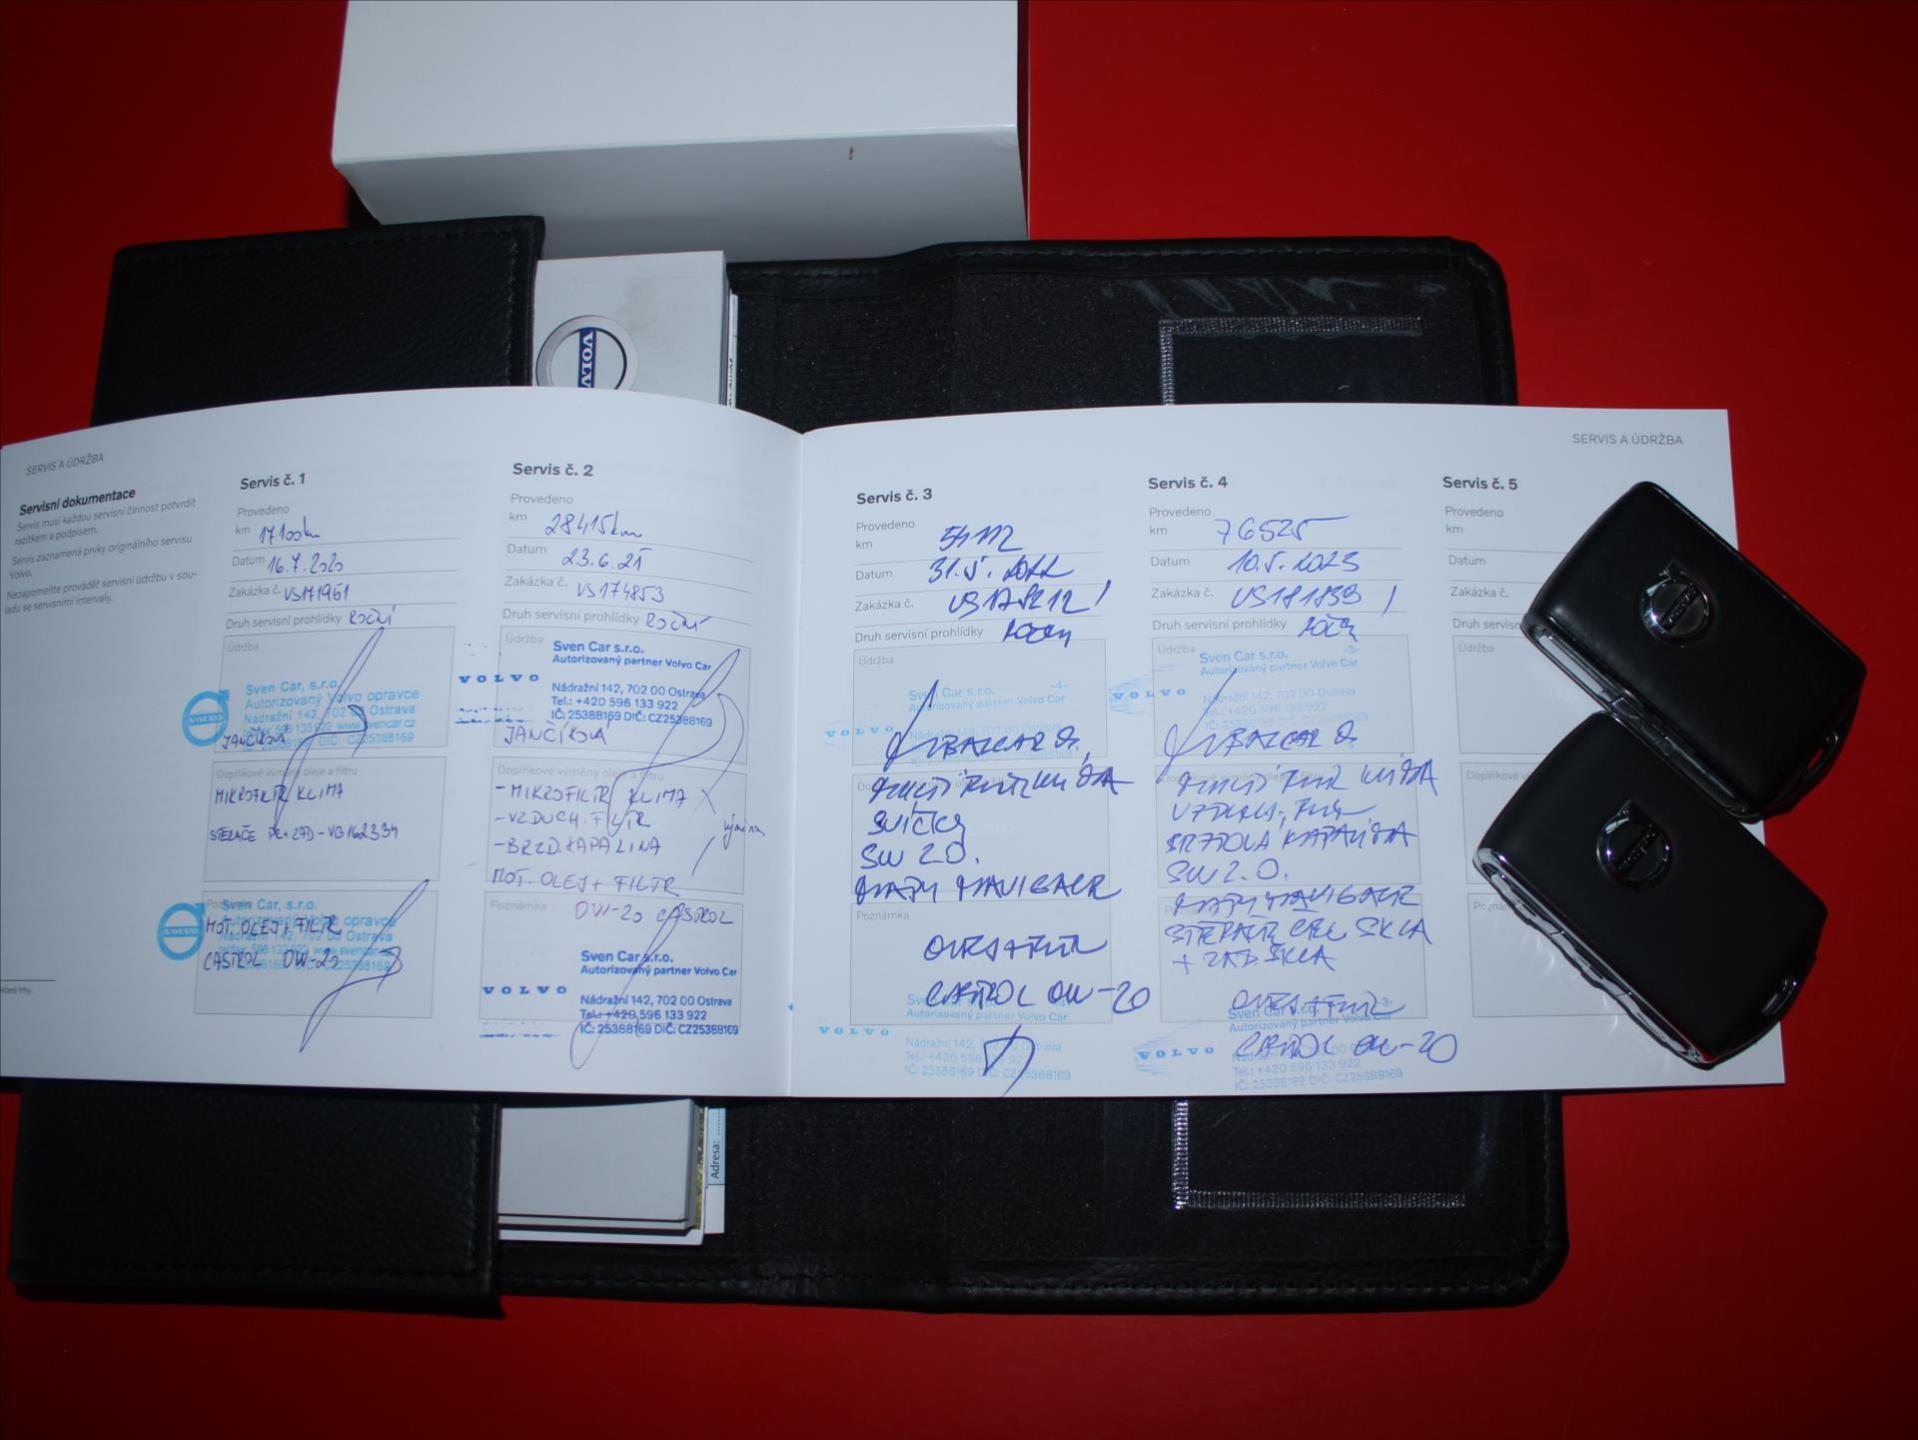 VOLVO
SERVIS A ÚDRŽBA
Servisní dokumentace
Servis musí každou servisní činnost potvrdit
razítkem a podpisem.
Servis zaznamená prvky originálního servisu
Volvo.
Nezapomeňte provádět servisní údržbu v sou-
ladu se servisními intervaly.
Servis č. 1
Provedeno
km 17100km
Datum 16.7.2020
Zakázka č. VS171961
Druh servisní prohlídky ROČNÍ
Údržba
Sven Car, s.r.o.
Autorizovaný Volvo opravce
Nádražní 142, 702 00 Ostrava
596 133 922 www.svencar.cz
DIČ: CZ25388169
VOLVO
JANČÍKOVÁ
Doplňkové výměny oleje a filtru
MIKROFILTR KLIMA
STĚRAČE PŘ+ZAD-VG162334
Poznámka
Sven Car, s.r.o.
Autorizovaný Volvo opravce
Nádražní 142, 702 00 Ostrava
VOLVO
MOT. OLEJ+FILTR
CASTROL 0W-20
Servis č. 2
Provedeno
km 28415km
Datum 23.6.21
Zakázka č. VS174853
Druh servisní prohlídky ROČNÍ
Údržba
Sven Car s.r.o.
Autorizovaný partner Volvo Car
VOLVO
Nádražní 142, 702 00 Ostrava
Tel.: +420 596 133 922
IČ: 25388169 DIČ: CZ25388169
JANČÍKOVÁ
Doplňkové výměny oleje a filtru
-MIKROFILTR KLIMA
-VZDUCH. FILTR
výměna
-BRZD.KAPALINA
MOT. OLEJ+ FILTR
Poznámka 0W-20 CASTROL
Sven Car s.r.o.
Autorizovaný partner Volvo Car
VOLVO
Nádražní 142, 702 00 Ostrava
Tel.: +420 596 133 922
IČ: 25388169 DIČ: CZ25388169
SERVIS A ÚDRŽBA
Servis č. 3
Provedeno
km 54112
Datum 31.5.2022
Zakázka č. VS178212
Druh servisní prohlídky ROČNÍ
Údržba
Sven Car s.r.o. -4-
Autorizovaný partner Volvo Car
VOLVO
SVÍČKY
SW 2.0.
MAPY NAVIGACE
Poznámka
OLEJ+FILTR
CASTROL 0W-20
Sven Car s.r.o.
Autorizovaný partner Volvo Car
VOLVO
Nádražní 142, 702 00 Ostrava
Tel.: +420 596 133 922
IČ: 25388169 DIČ: CZ25388169
Servis č. 4
Provedeno
km 76525
Datum 10.5.2023
Zakázka č. VS181839
Druh servisní prohlídky ROČNÍ
Údržba
Sven Car s.r.o. -3-
Autorizovaný partner Volvo Car
VOLVO
Nádražní 142, 702 00 Ostrava
Tel.: +420 596 133 922
IČ: 25388169 DIČ: CZ25388169
BRZDOVÁ KAPALINA
SW 2.0.
MAPY NAVIGACE
+ ZAD. SKLA
OLEJ+FILTR
Sven Car s.r.o. -3-
Autorizovaný partner Volvo Car
CASTROL 0W-20
VOLVO
Tel.: +420 596 133 922
IČ: 25388169 DIČ: CZ25388169
Servis č. 5
Provedeno
km
Datum
Zakázka č.
Druh servisní
Údržba
Doplňkové
VOLVO
VOLVO
Adresa: